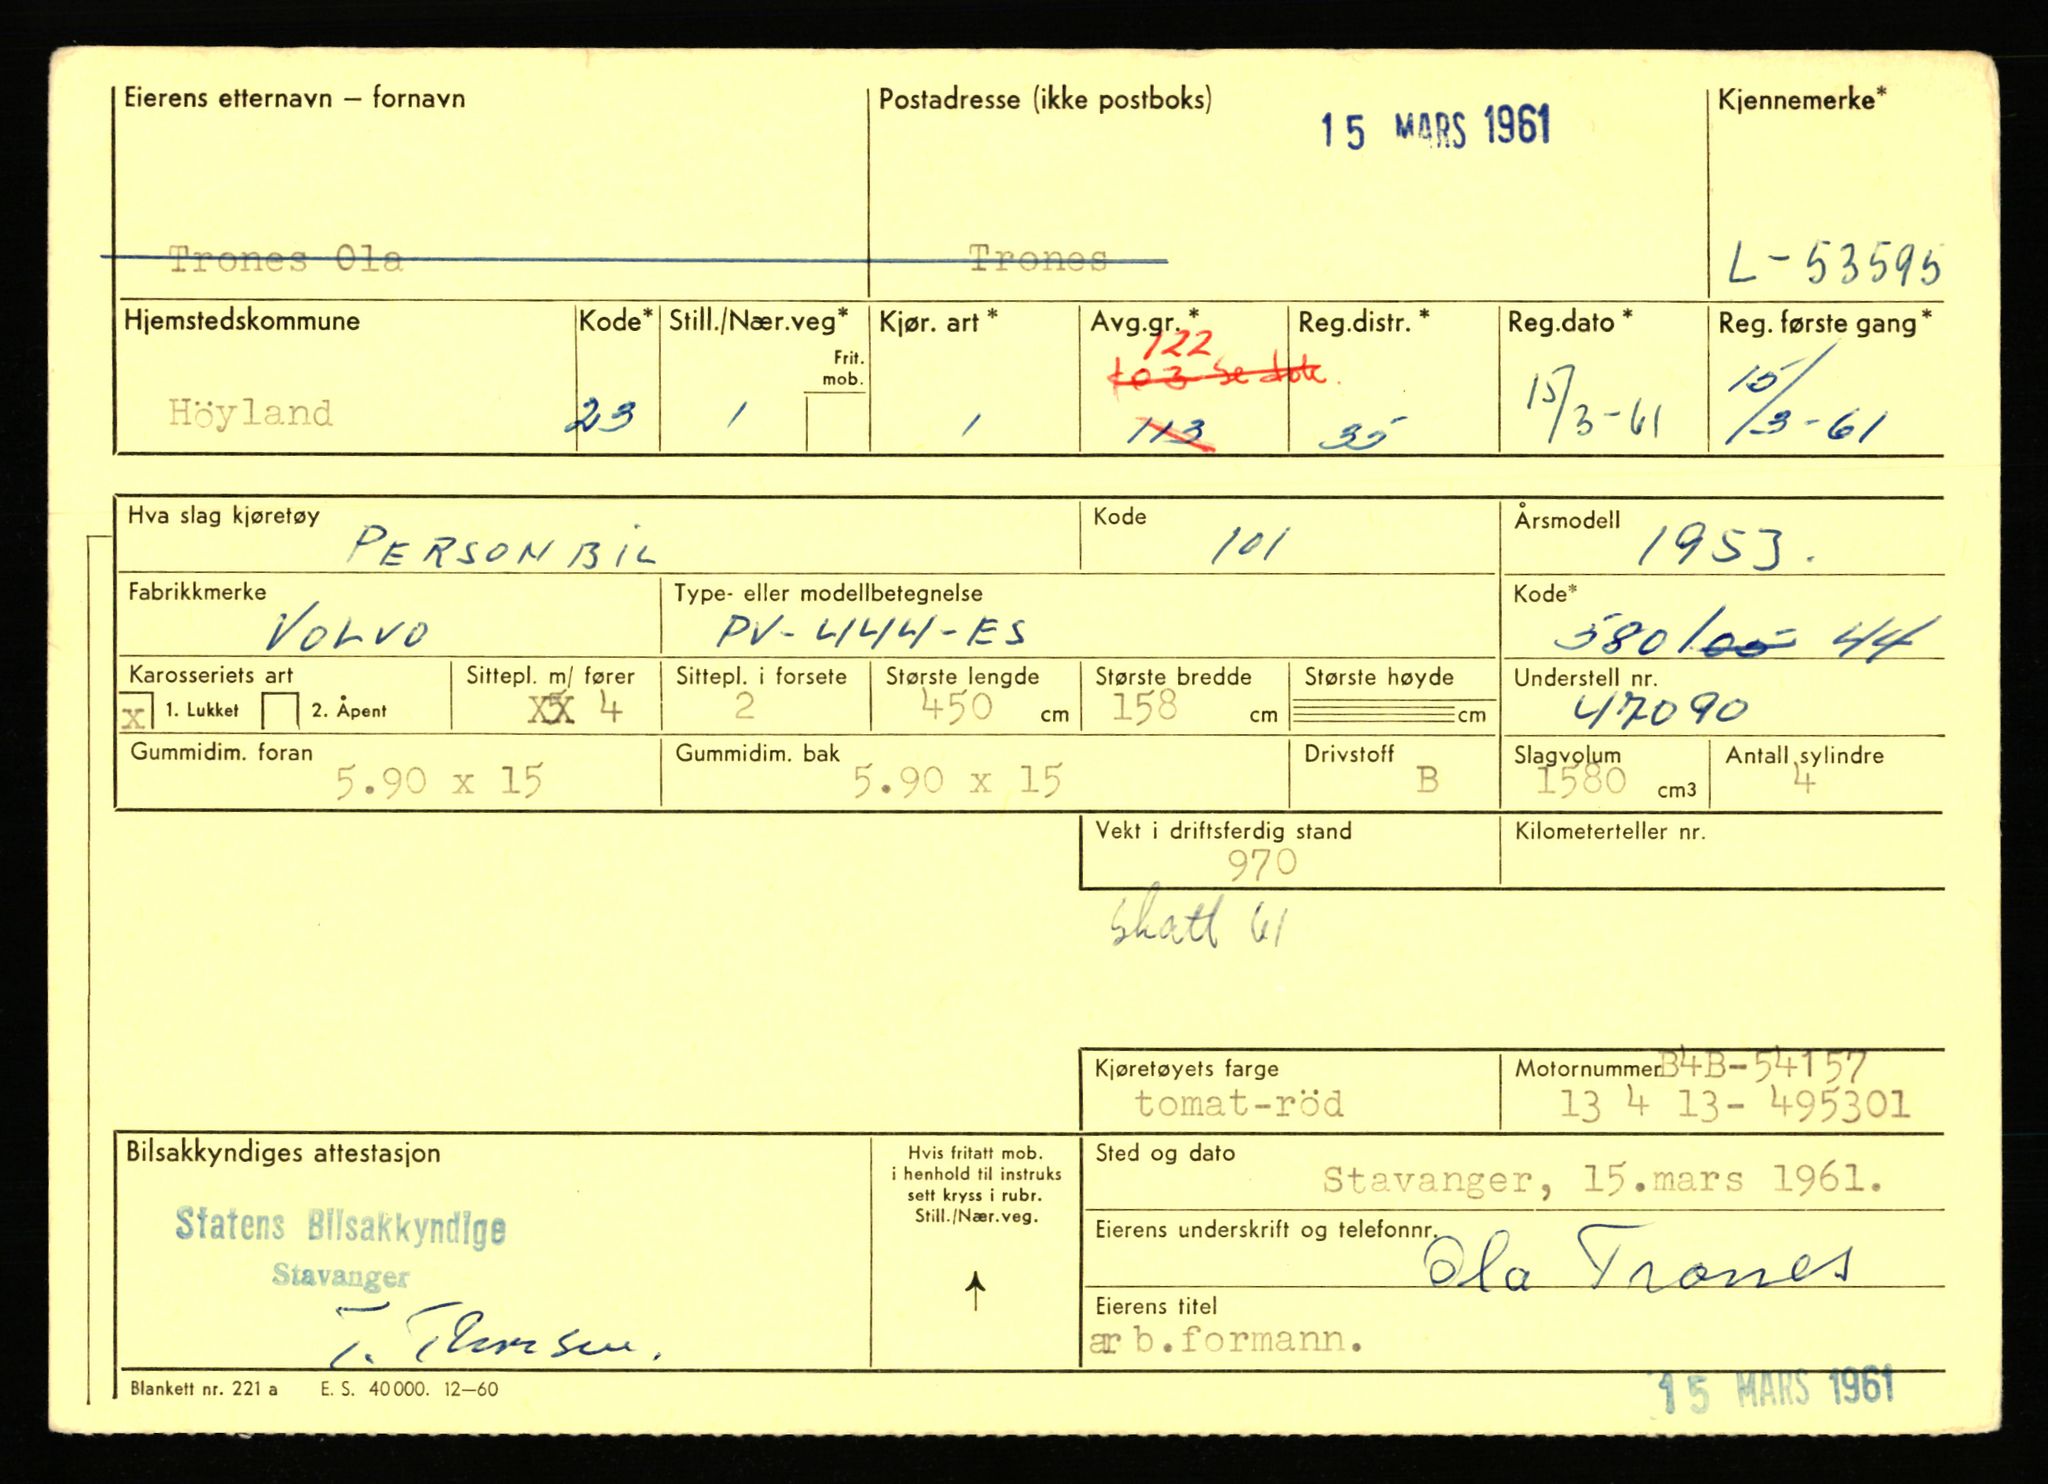 Eierens etternavn – fornavn
Postadresse (ikke postboks)
15 MARS 1961
Kjennemerke*
Trones Ola
Trones
L-53595
Hjemstedskommune
Höyland
Kode*
23
Still./Nær.veg*
Frit.
mob.
1
Kjør. art*
1
Avg.gr.*
122
103 Se dok.
113
Reg.distr.*
35
Reg.dato*
15/3-61
Reg. første gang*
15/3-61
Hva slag kjøretøy
PERSONBIL
Kode
101
Årsmodell
1953.
Fabrikkmerke
VOLVO
Type- eller modellbetegnelse
PV-444-ES
Kode*
580100 44
Karosseriets art
x 1. Lukket 2. Åpent
Sittepl. m/ fører
X5X 4
Sittepl. i forsete
2
Største lengde
450 cm
Største bredde
158 cm
Største høyde
cm
Understell nr.
47090
Gummidim. foran
5.90 x 15
Gummidim. bak
5.90 x 15
Drivstoff
B
Slagvolum
1580 cm3
Antall sylindre
4
Vekt i driftsferdig stand
970
Kilometerteller nr.
Skatt 61
Kjøretøyets farge
tomat-röd
Motornummer B4B-54157
13 4 13- 495301
Bilsakkyndiges attestasjon
Statens Bilsakkyndige
Stavanger
T. Thorsen.
Hvis fritatt mob.
i henhold til instruks
sett kryss i rubr.
Still./Nær.veg.
Sted og dato
Stavanger, 15.mars 1961.
Eierens underskrift og telefonnr.
Ola Trones
Eierens titel
arb.formann.
Blankett nr. 221 a E. S. 40000. 12–60
15 MARS 1961